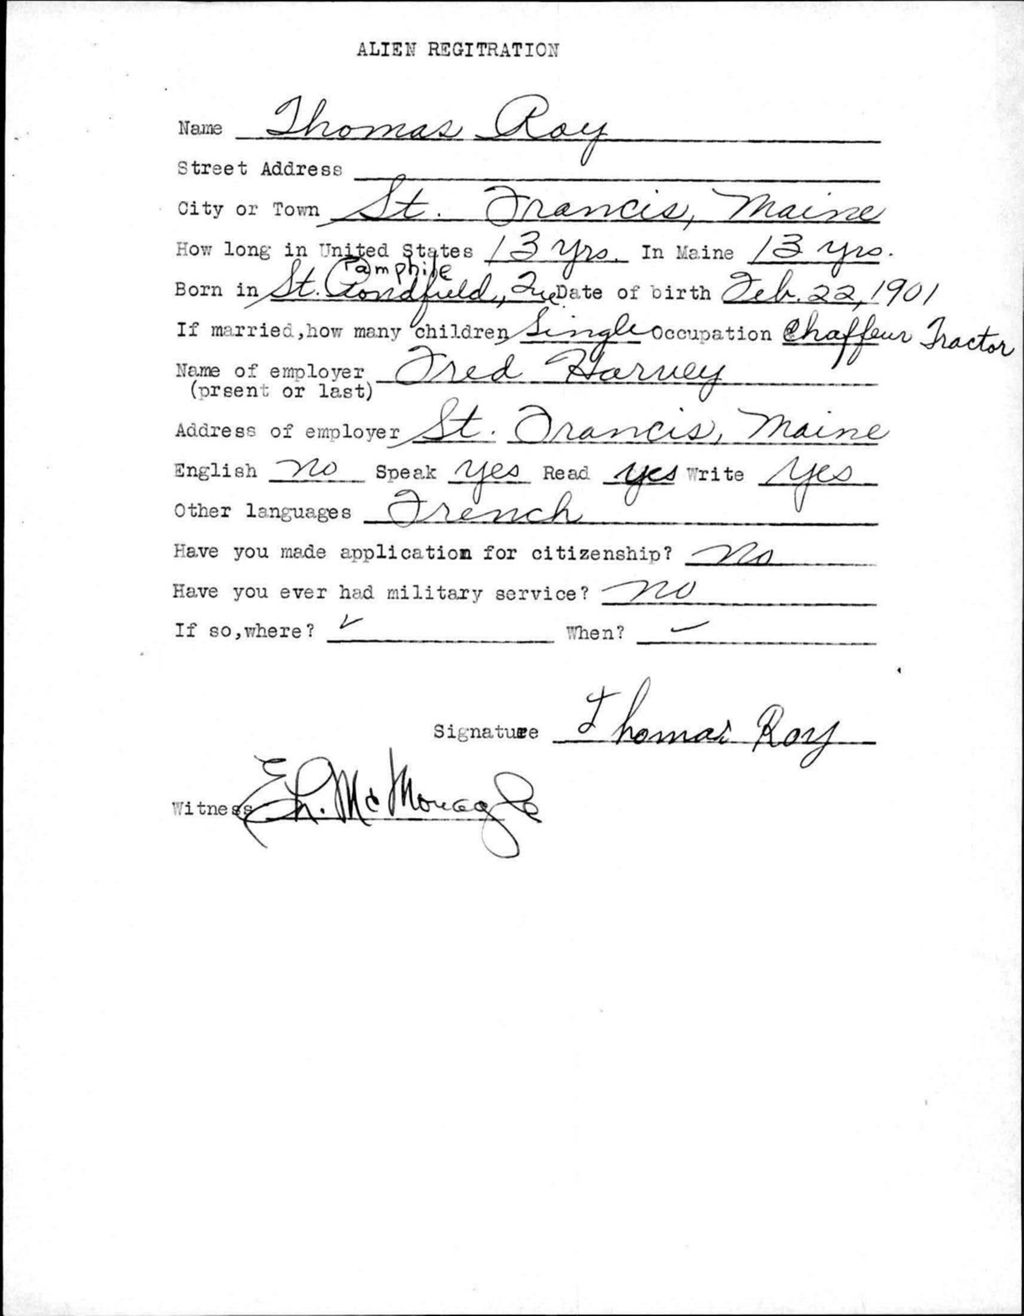 ALIEN REGITRATION
Name Thomas Roy
Street Address
City or Town St. Francis, Maine
How long in United States 13 yrs. In Maine 13 yrs.
Pamphile
Born in St. Pondfield, Que Date of birth Feb. 22, 1901
If married,how many children Single Occupation Chaffeur Tractor
Name of employer Fred Harvey
(prsent or last)
Address of employer St. Francis, Maine
English No Speak yes Read yes Write yes
Other languages French
Have you made application for citizenship? No
Have you ever had military service? no
If so,where? When?
Signature Thomas Roy
Witness McMonagle